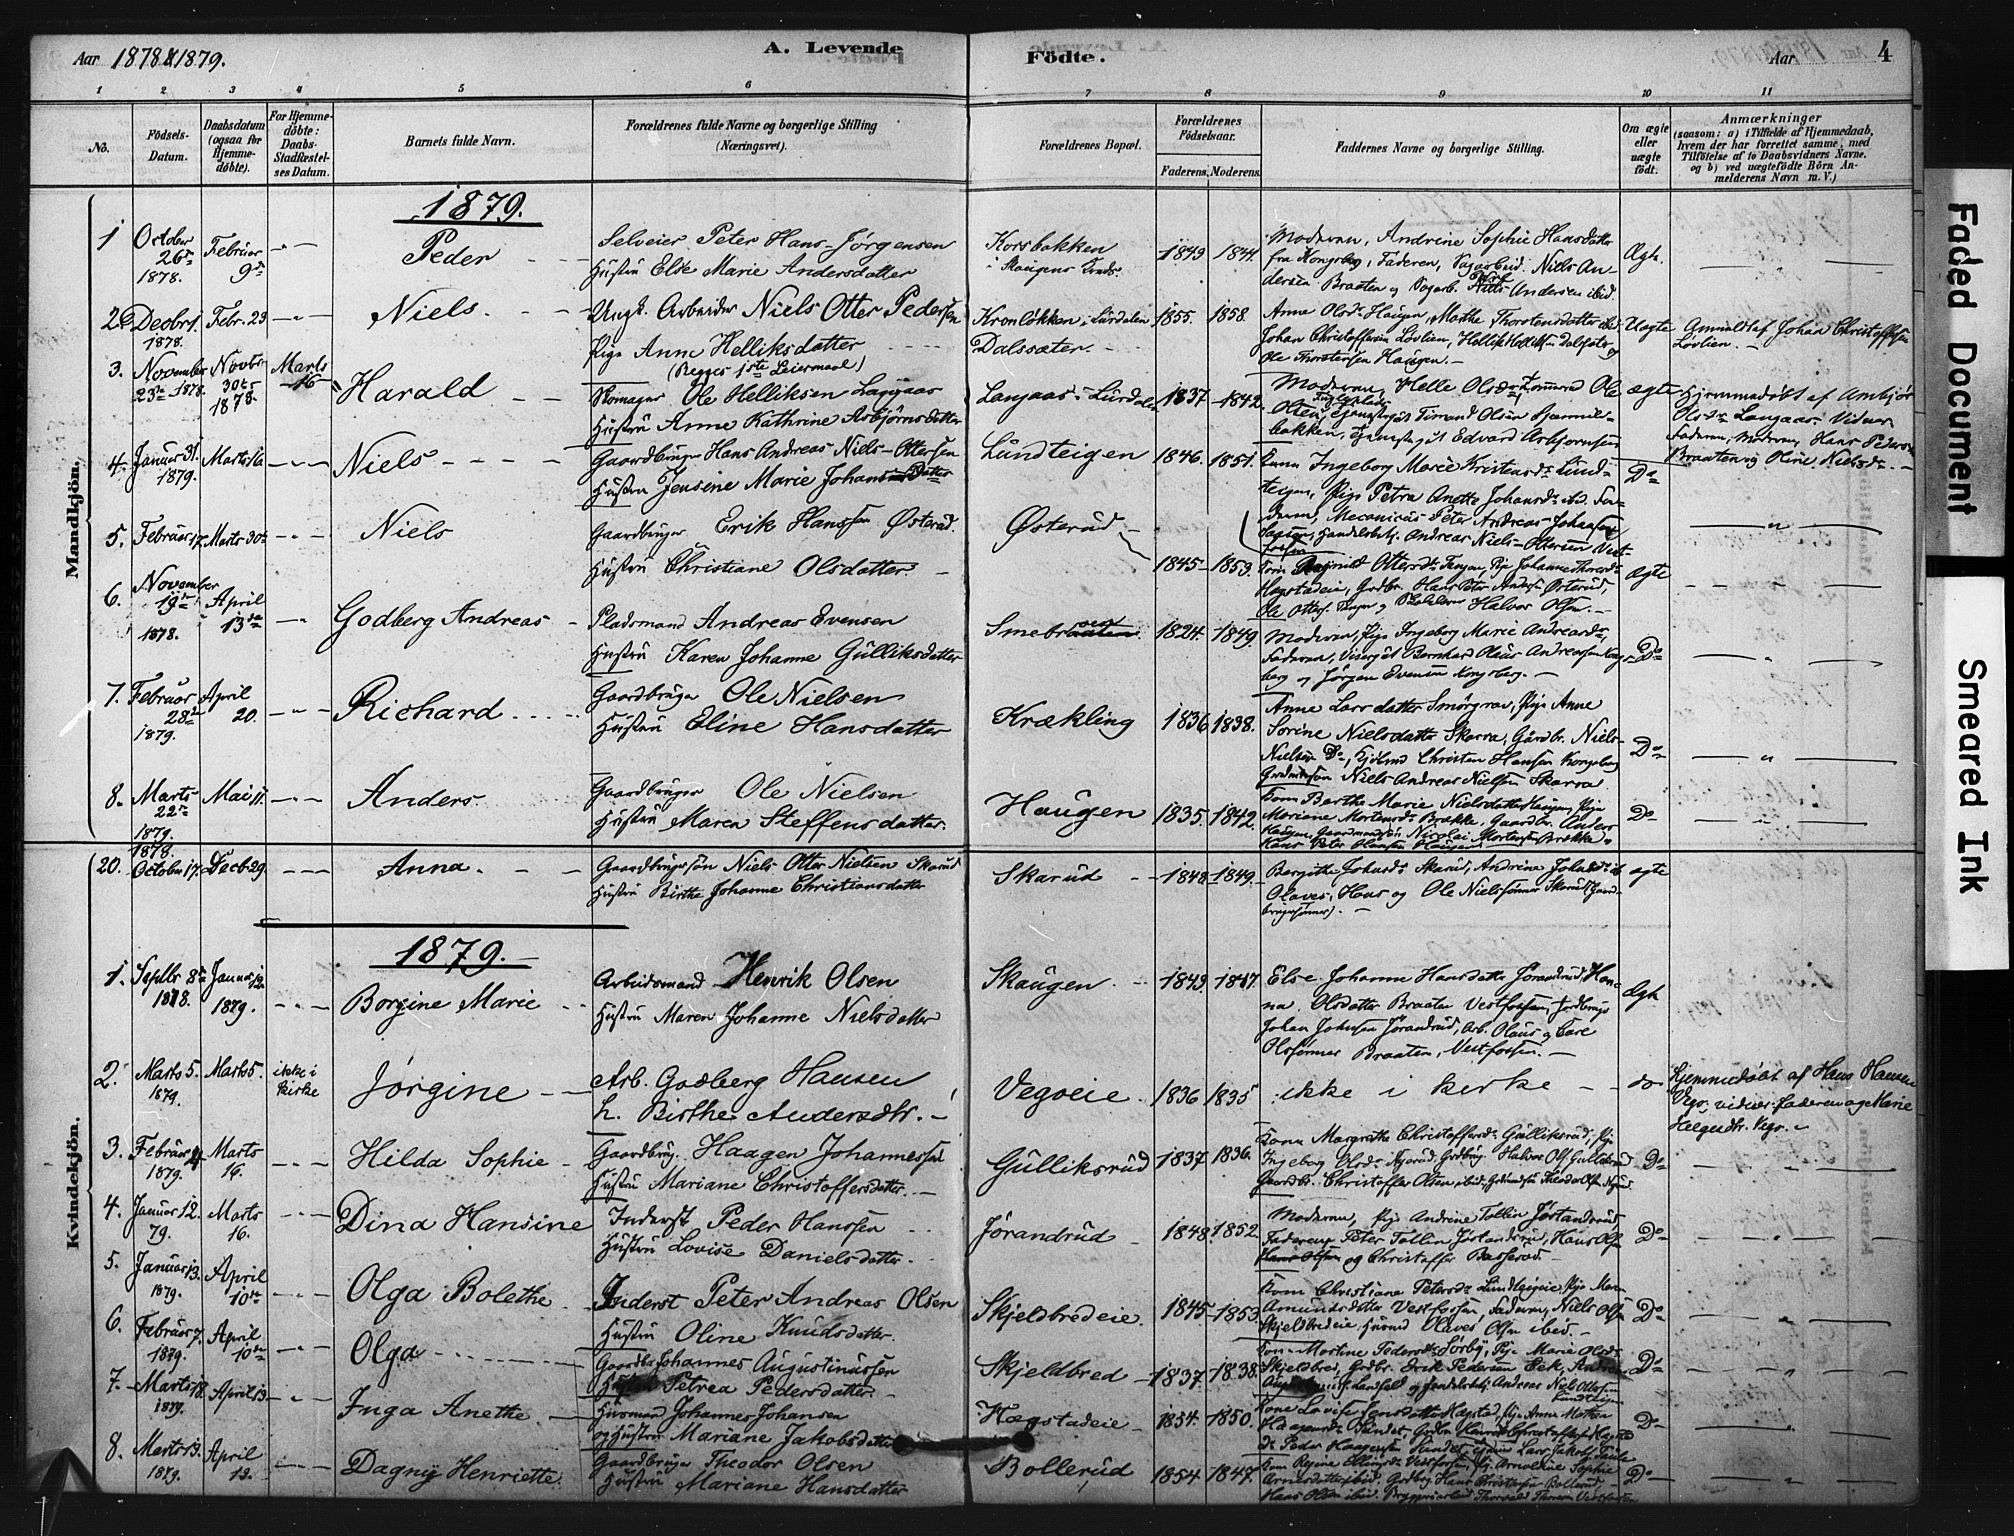 Aar 1878 & 1879.
A. Levende
Födte.
Aar
4
1 2 3 4 5 6 7 8 9 10 11
No.
Födsels-
Datum.
Daabsdatum
(ogsaa for
Hjemme-
döbte).
For Hjemme-
döbte:
Daabs-
Stadfæstel-
ses Datum.
Barnets fulde Navn.
Forældrenes fulde Navne og borgerlige Stilling
(Næringsvei).
Forældrenes Bopæl.
Forældrenes
Födselsaar.
Faderens. Moderens.
Faddernes Navne og borgerlige Stilling.
Om ægte
eller
uægte
födt.
Anmærkninger
(saasom: a) i Tilfælde af Hjemmedaab,
hvem der har forrettet samme, med
Tilföielse af to Daabsvidners Navne.
og b) ved uægtefödte Börn An-
melderens Navn m. V.)
Mandkjön.
1879.
1
October
26de
1878.
Februar
9de
Peder
Selveier Peter Hans-Jørgensen
Hustru Else Marie Andersdatter
Korsbakken
i Skougens Kreds
1849 1844.
Moderen, Andrine Sophie Hansdatter
fra Kongsberg, Faderen, Sagarbeid. Niels An-
dersen Braaten og Sagarb. Andersen ibid.
Ægte.
2
Decbr 1.
1878.
Febr. 23
Niels.
Ungk. Arbeider Niels Otter Pedersen
Pige Anne Helliksdatter
(Begges 1ste Leiermaal)
Kronløkken i Lurdalen
Dalssæter.
1855. 1858.
Anne Olsdr Haugen, Marthe Thorstensdatter ibid
Johan Christoffersen Løvlien, Hellik Helliksen Dalsæter og
Ole Thorstensen Haugen.
Uægte
Anmeldt af Johan Christoffersen
Løvlien.
3.
November
23de 1878.
Novbr
30te
1878.
Marts
16
Harald
Skomager Ole Helliksen Langaas
Hustru Anne Kathrine Asbjørnsdatter
Langaas i Lurdalen
1837 1842.
Moderen, Helle Olsdr, Ole
Olsen, Ungk. Tormod Olsen
bakken, Edvard Asbjørnsen
ægte
Hjemmedøbt af Anbjør
Olsdr Langaas. Vidner
Faderen, Moderen, Hans Pedersen
Braaten og Oline Nielsdr.
4.
Januar 31.
1879.
Marts 16.
Niels
Gaardbruger Hans Andreas Niels-Ottersen
Hustru Jensine Marie Johansdatter
Lundteigen
1846. 1851.
Kone Ingeborg Marie Kristensdr Lund-
teigen, Pige Petra Anette Johansdr ibid. Fa-
deren, Mecanicus Peter Andreas Johansen
Handelsbetj. Andreas Niels-Ottersen Vest-
fossen
Do
5.
Februar 17.
Marts 30te
Niels
Gaardbruger Erik Hanssen Østerud.
Hustru Christiane Olsdatter.
Østerud
1845 1853.
Kone Ragnild Ottersdr Teigen, Pige Johanne Thorsdr
Hagstadeie, Grdbr. Hans Peter Anders. Østerud,
Ole Otters. Teigen og Halvor Olsen.
ægte
6.
November
19de
1878.
April
13de
Godberg Andreas
Pladsmand Andreas Evensen
Hustru Karen Johanne Gulliksdatter
1824. 1849.
Moderen, Pige Ingeborg Marie Andreasdr,
Faderen, Bernhard Olaus Andreassen Kongs-
berg og Jørgen Evensen Kongsberg.
Do
7.
Februar
28de
1879.
April
20.
Richard
Gaardbruger Ole Nielsen
Hustru Eline Hansdatter
Krækling
1836 1838.
Anne Larsdatter Smørgrav, Pige Anne
Sørine Nielsdatter Skarra, Gårdbr. Niels
Nielsen Do, Christen Hansen Kongsberg
Niels Andreas Nielsen Skarra
Do
8.
Marts
22de
1879.
Mai 11.
Anders.
Gaardbruger Ole Nielsen
Hustru Maren Steffensdatter.
Haugen
1835. 1842.
Kone Berthe Marie Nielsdatter Haugen, Pige
Mariane Mortensdr Brække, Gaardbr. Anders
Haugen, Gaardmandss. Nicolai Mortensen Brække,
Hans Peter Hansen Haugen
Do
Kvindekjön.
20.
1878.
October 17.
Decb 29.
Anna.
Gaardbrugersøn Niels Otter Nielsen Skarud
Hustru Birthe Johanne Christiansdatter
Skarud
1848 1849.
Bergithe Johnsdr Skarud, Andrine Johnsdr ib
Olaves, Hans og Ole Nielssønner Skarud (Gaard-
brugersønner).
ægte
1879.
1.
Septbr 8de
1878.
Januar 12.
1879.
Borgine Marie
Arbeidsmand Henrik Olsen
Hustru Maren Johanne Nielsdatter
Skaugen.
1849 1847.
Else Johanne Hansdatter Jørandrud, Han-
na Olsdatter Braaten Vestfossen, Jordbruger
Johan Johnsen Jørandrud, Arb. Olaus og Carl
Olssønner Braaten, Vestfossen.
Ægte.
2.
Marts 5.
1879.
Marts 5.
ikke i
kirke
Jørgine
Arb. Godberg Hansen
h. Birthe Andersdtr.
Vegoeie
1836 1835
ikke i kirke
do
Hjemmedøbt af Hans Hansen
Vego, vidner: faderen og Marie
Helgesdtr. Vego.
3.
Februar
1879.
Marts
16.
Hilda Sophie
Gaardbrug. Haagen Johannessen
Hustru Mariane Christoffersdatter.
Gulliksrud
1837 1836.
Kone Margrethe Christoffersdr Gulliksrud, Pige
Ingeborg Olsdr Gardbrug. Halvor Ols. Gulliksrud
Gaardbr. Christoffer Olsen, ibid, Theodor Olsen
Do
4.
Januar 12.
79.
Marts
16.
Dina Hansine
Inderst Peder Hanssen
Hustru Lovise Danielsdatter.
Jørandrud
1848. 1852.
Moderen, Pige Andrine Tollin Jørandrud,
Faderen, Peter Tollin Jørandrud, Hans Olsen
og Christoffer
Do
5.
Januar 13.
1879.
April
10de
Olga Bolethe
Inderst Peter Andreas Olsen
Hustru Oline Knudsdatter.
Skjeldbredeie
1845 1853.
Kone Christiane Petersdr Lundteigeie, Pige Maren
Amundsdatter Vestfossen, Faderen, Niels Olsen
Skjeldbredeie, Husmd Olaves Olsen ibid.
Do
6.
Februar 7.
1879.
April
10de
Olga
Gaardbr Johannes Augustinussen
Hustru Petrea Pedersdatter.
Skjeldbred
1837. 1838.
Kone Martine Pedersdr Sørby, Pige Marie Olsdr
Skjeldbred, Grdbr. Erik Pedersen Eek,
Landfald og Handelsbetj. Andreas Niels Ottersen
Lundteigen
Do
7.
Marts 18.
1879.
April 13
Inga Anethe.
Husmand Johannes Johansen
og Hustru Mariane Jakobsdatter
Hægstadeie
1854. 1850.
Kone Lovise Jensdatter Hægstad, Pige Anna Mathea
Haagensdr Sundet,
Peder Haagensen Sundet, Lars Jakobs.
Do
8.
Marts 13.
1879.
April
12.
Dagny Henriette
Gaardbruger Theodor Olsen
Hustru Mariane Hansdatter
Bollerud
1854 1847.
Kone Regine Ellingsdr Vestfossen, Pig. Arnoldine Sophie
Arnesdatter ibid. Grdbrg. Hans Christensen Bollerud,
Hans Olsen ibid. Bryggeriarbeid. Thorvald Thoresen Vestfossen
Do
Faded Document
Smeared Ink